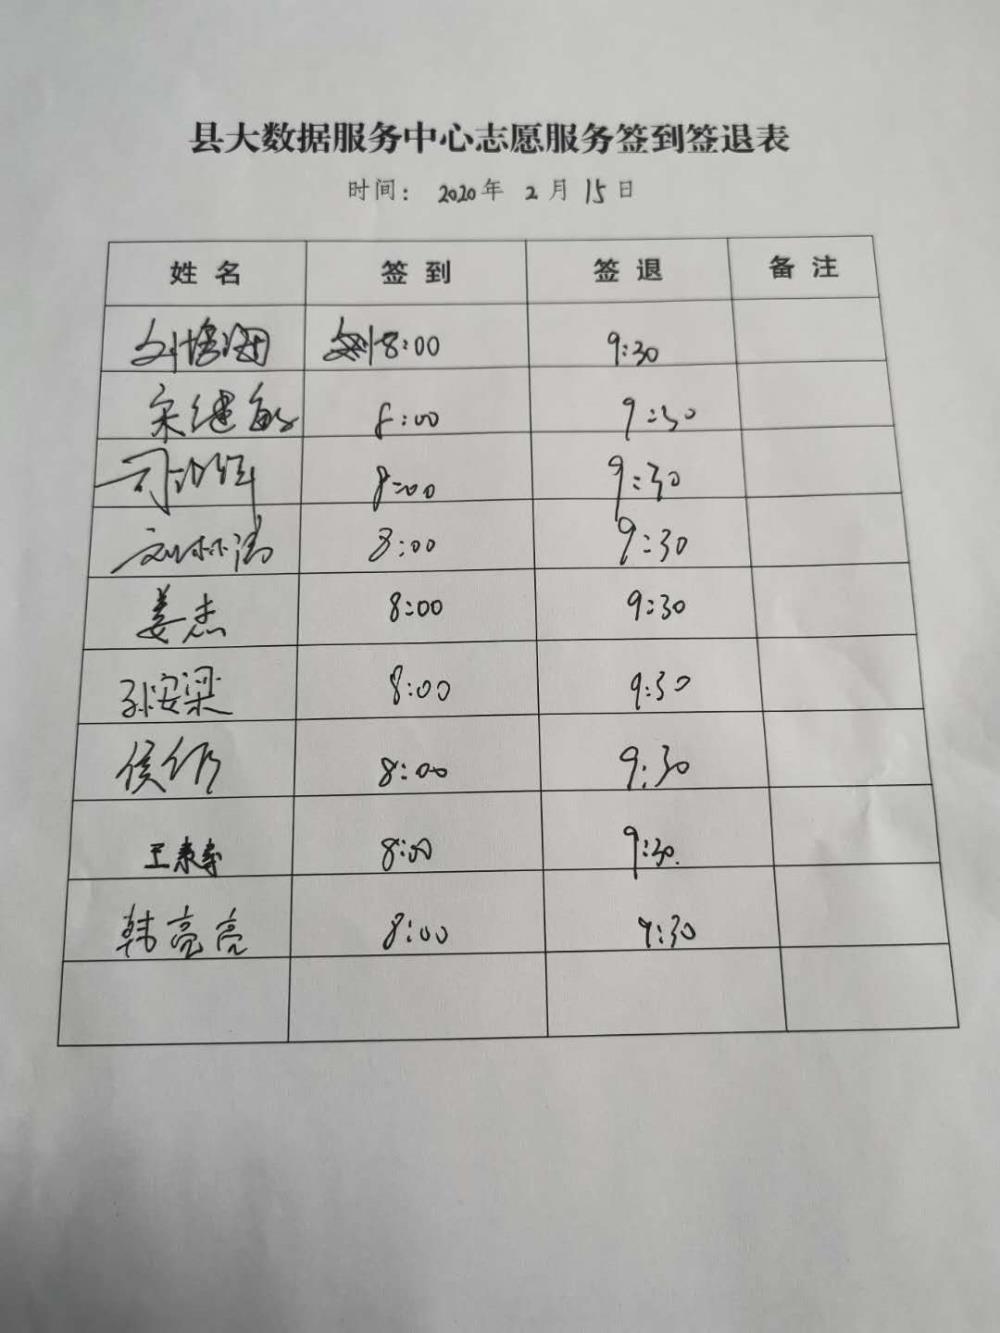 县大数据服务中心志愿服务签到签退表
时间: 2020年 2月 15日
姓名 签到 签退 备注
8:00 9:30
8:00 9:30
8:00 9:30
8:00 9:30
姜杰 8:00 9:30
孙安梁 8:00 9:30
8:00 9:30
8:00 9:30.
韩亮亮 8:00 9:30